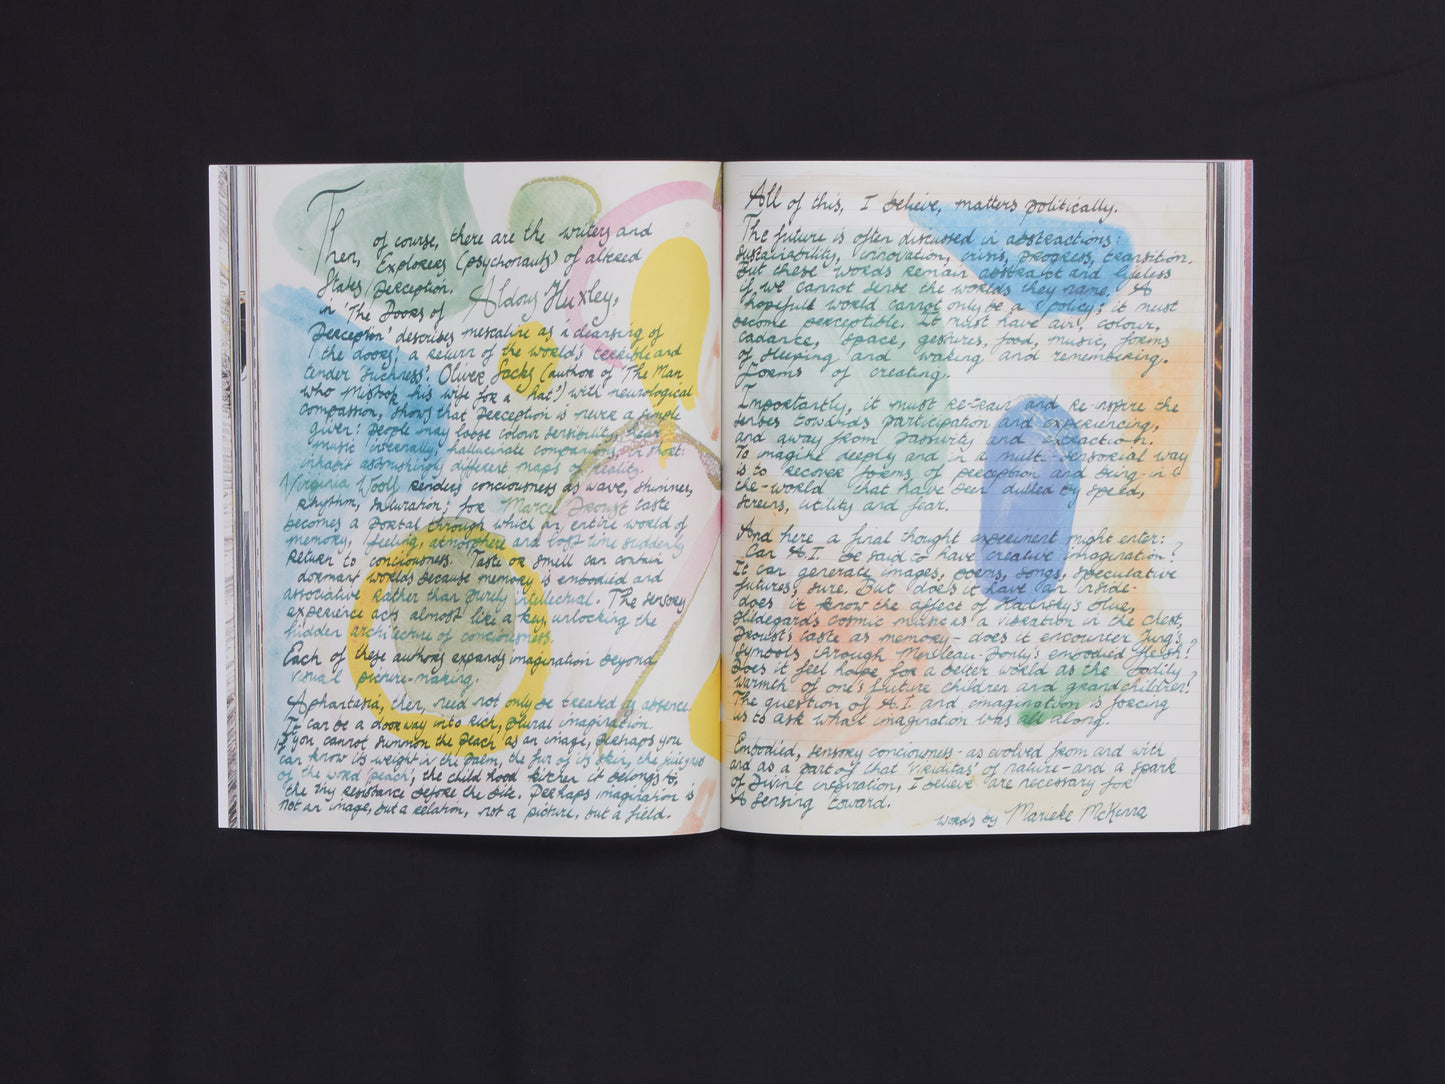 Then, of course, there are the writers and
Explorers (psychonauts) of altered
States / Perception.
Aldous Huxley,
in 'The Doors of
Perception' describes mescaline as a cleansing of
'the doors', a return of the world's terrible and
tender 'suchness'. Oliver Sacks (author of 'The Man
who Mistook his wife for a hat') with neurological
compassion, shows that perception is never a simple
given: people may loose colour sensibility, hear
music internally, hallucinate companions, in short:
inhabit astonishingly different maps of reality.
Virginia Woolf renders conciousness as wave, shimmer,
rhythm, saturation; for Marcel Proust taste
becomes a portal through which an entire world of
memory, feeling, atmosphere and lost time suddenly
return to conciousness. Taste or smell can contain
dormant worlds because memory is embodied and
associative rather than purely intellectual. The sensory
experience acts almost like a key, unlocking the
hidden architecture of conciousness.
Each of these authors expands imagination beyond
visual picture-making.
Aphantasia, then, need not only be treated as absence.
It can be a doorway into rich, plural imagination.
If you cannot summon the peach as an image, perhaps you
can know its weight in the palm, the fur of its skin, the juiciness
of the word 'peach', the childhood kitchen it belongs to,
the tiny resistance before the bite. Perhaps imagination is
not an image, but a relation, not a picture, but a field.
All of this, I believe, matters politically.
The future is often discussed in abstractions:
sustainability, innovation, crisis, progress, transition.
But these words remain abstract and lifeless
if we cannot sense the worlds they name. A
hopefull world cannot only be a 'policy', it must
become perceptible. It must have air, colour,
cadance, space, gestures, food, music, forms
of sleeping and waking and remembering.
Forms of creating.
Importantly, it must re-train and re-inspire the
senses towards participation and experiencing,
and away from passivity and extraction.
To imagine deeply and in a multi-sensorial way
is to recover forms of perception and being-in-
the-world that have been dulled by speed,
screens, utility and fear.
And here a final thought experiment might enter:
Can A.I. be said to have creative imagination?
It can generate images, poems, songs, speculative
futures, sure. But does it have an inside-
does it know the affect of Kadinsky's blue,
Hildegard's cosmic music as a vibration in the chest,
Proust's taste as memory - does it encounter Jung's
symbols through Merleau-Ponty's embodied flesh?
Does it feel hope for a better world as the bodily
warmth of one's future children and grandchildren?
The question of A.I. and imagination is forcing
us to ask what imagination was all along.
Embodied, sensory conciousness - as evolved from and with
and as a part of that 'viriditas' of nature - and a spark
of Divine inspiration, I believe are necessary for
A sensing toward.
words by Marieke McKenna